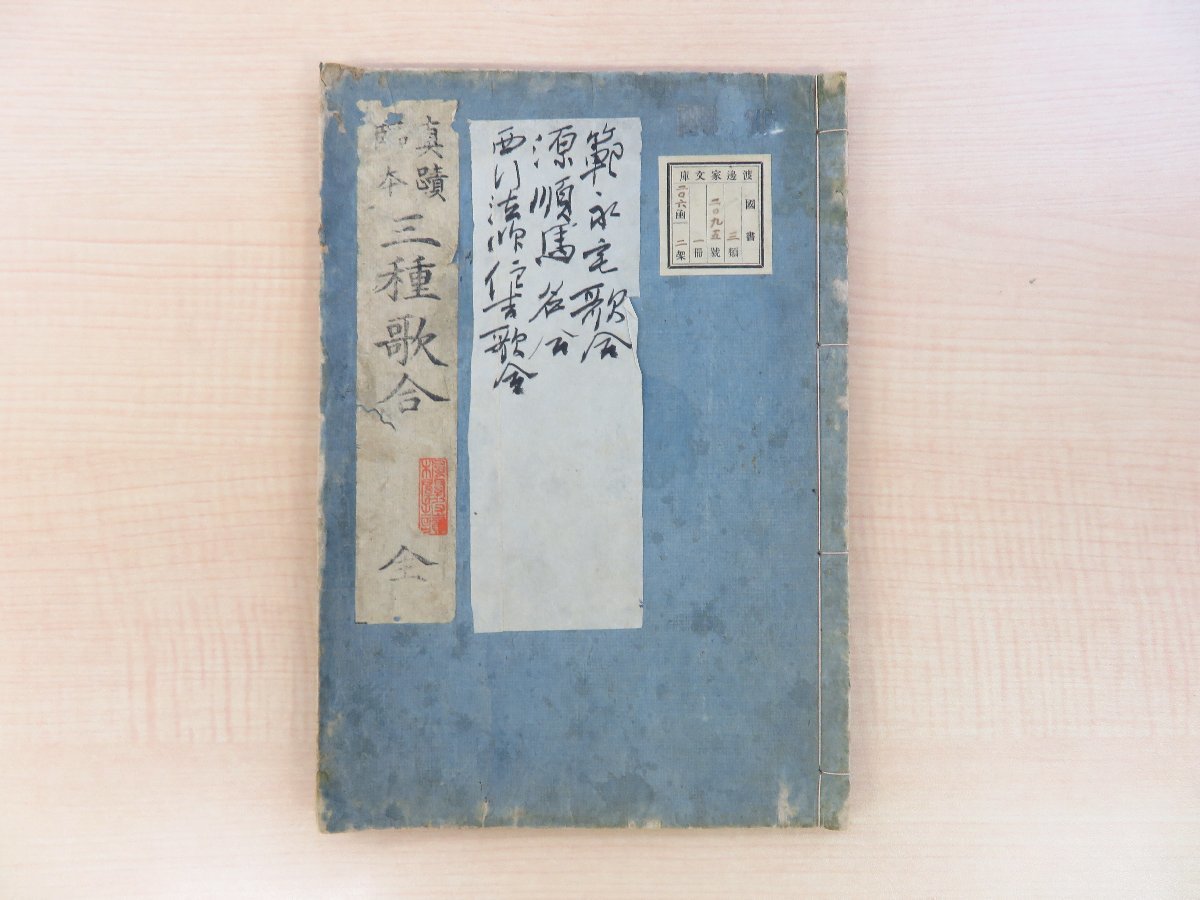 渡邊家文庫
國書
三類
二〇九五號
一冊
二〇六函
二架
範永宅歌合
源順馬名合
西行法師住吉歌合
真蹟
臨本
三種歌合
全